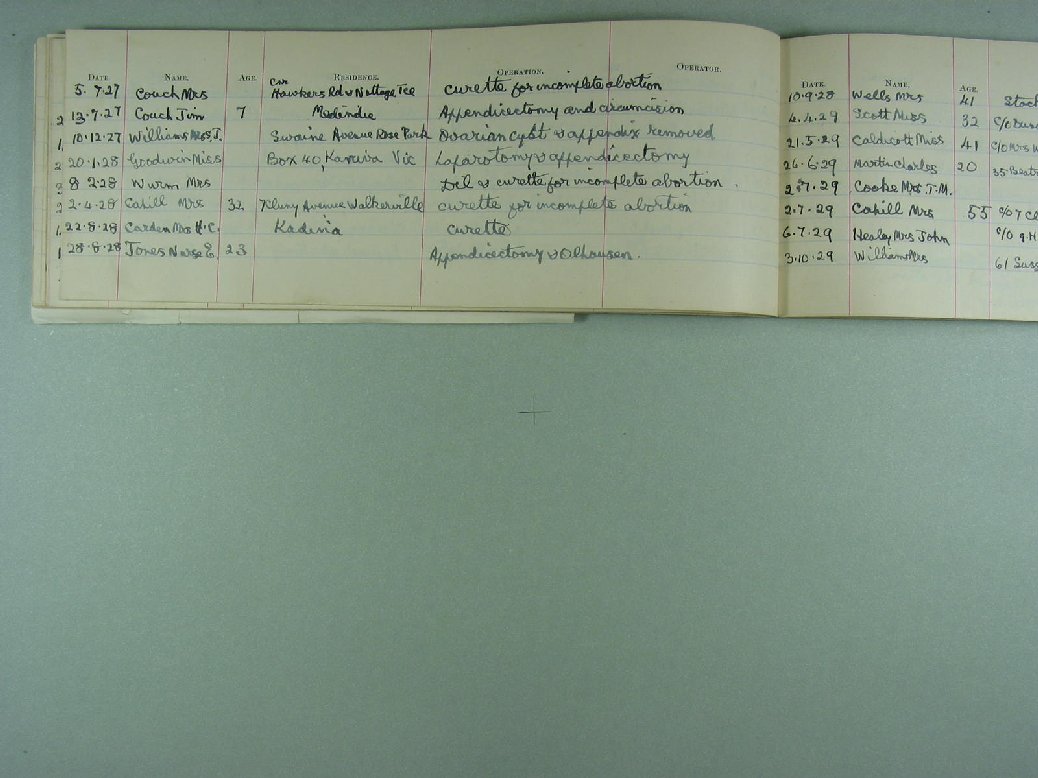 DATE. NAME. AGE. RESIDENCE. OPERATION. OPERATOR.
5.7.27 Couch Mrs Cnr Hawkers Rd & Nottage Tce curette for incomplete abortion
2 13.7.27 Couch Jim 7 Medindie Appendicectomy and circumcision
1 10.12.27 Williams J. Swaine Avenue Rose Park Ovarian cyst & appendix removed
2 20.1.28 Goodwin Miss Box 40, Kaniva Vic Laparotomy & appendicectomy
2 8 2.28 Wurm Mrs Dil & curette for incomplete abortion.
2 2.4.28 Cahill Mrs 32 Kluny Avenue Walkerville curette for incomplete abortion
1 22.8.28 Carden Mrs H.C. Kadina curette
1 28.8.28 Jones Nurse E 23 Appendicectomy & Olhausen.
DATE. NAME. AGE.
10.9.28 Wells Mrs 41 Stock
4.4.29 Scott Miss 32 C/o
21.5.29 Caldicott Miss 41 C/o Mrs
26.6.29 Martin Charles 20 35
2.7.29 Cooke Mrs J.M.
2.7.29 Cahill Mrs 55
6.7.29 Healey Mrs John C/o
3.10.29 Williams Mrs 61 Suss